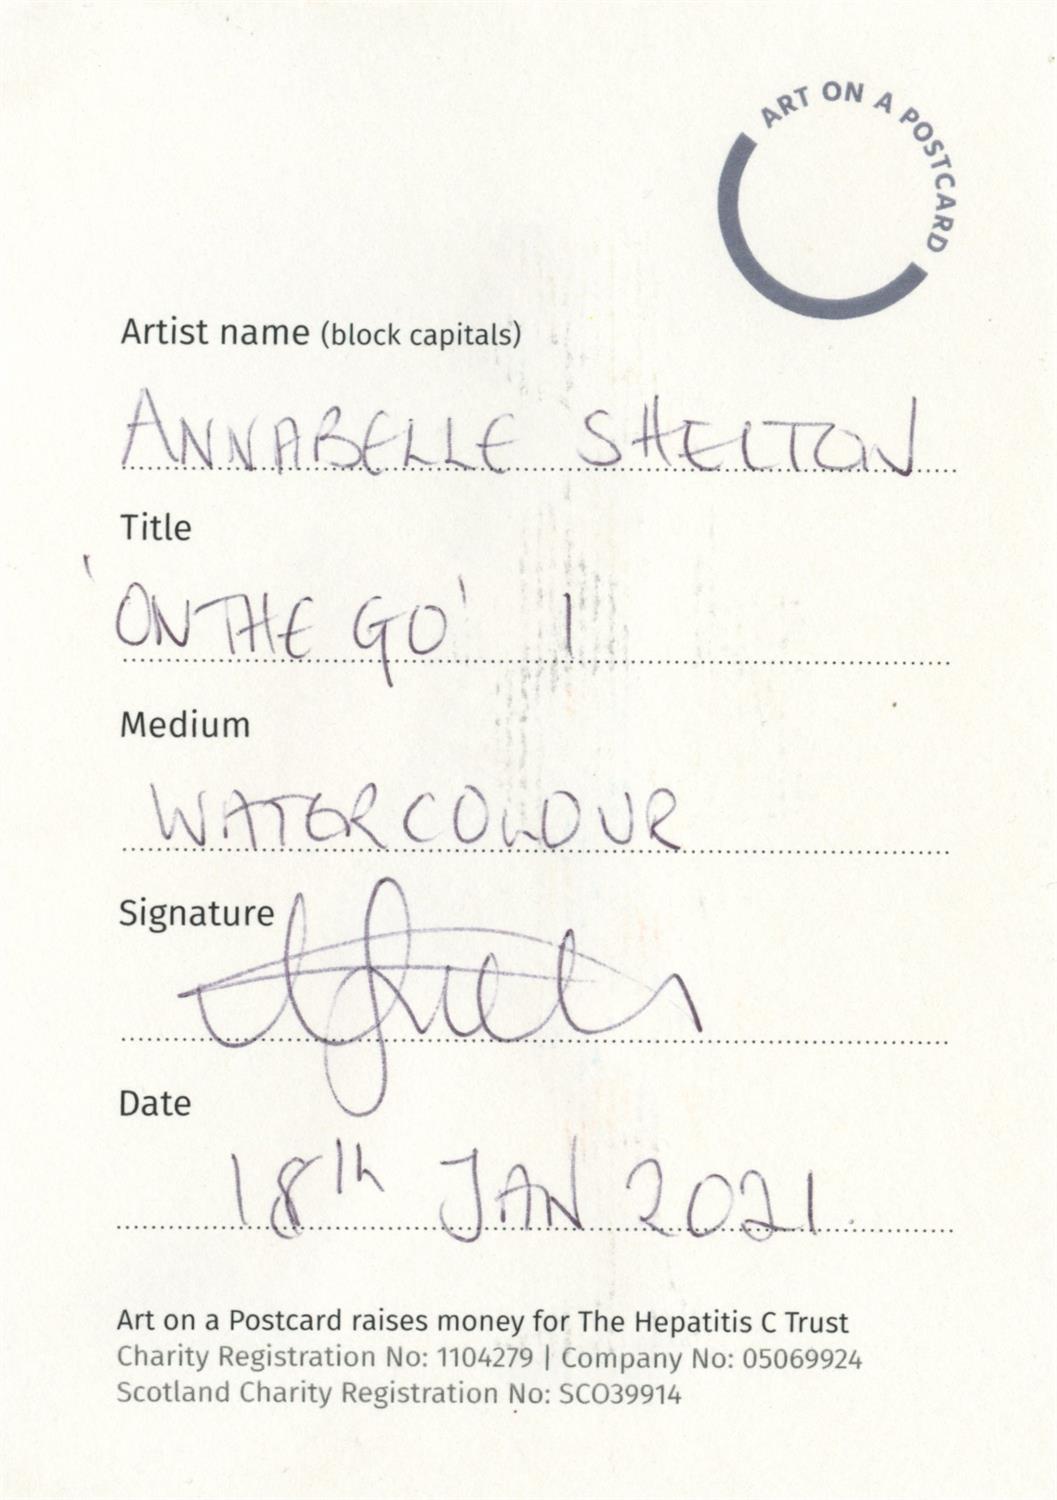 ART ON A POSTCARD
Artist name (block capitals)
ANNABELLE SHELTON
Title
'ON THE GO' 1
Medium
WATERCOLOUR
Signature
Date
18th JAN 2021.
Art on a Postcard raises money for The Hepatitis C Trust
Charity Registration No: 1104279 | Company No: 05069924
Scotland Charity Registration No: SCO39914